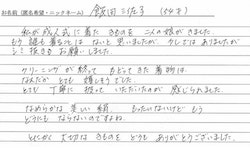 お名前（匿名希望・ニックネーム） 飯田三佐子 （54才）
私が成人式に着た きものを 二人の娘がきました。
もう 誰も着ることは ないと 思いましたが 少しでは ありましたが
シミ抜きを お願いしました。
クリーニングが 終って もどってきた 着物は
なんだか とても 嬉しそうでした
とても 丁寧に 扱って いただいたのが 感じられました。
なめらかな 美しい 着物 もったいないけど もう
どうにも ならないのですよね
とにかく 大切な きものを どうも ありがとうございました。